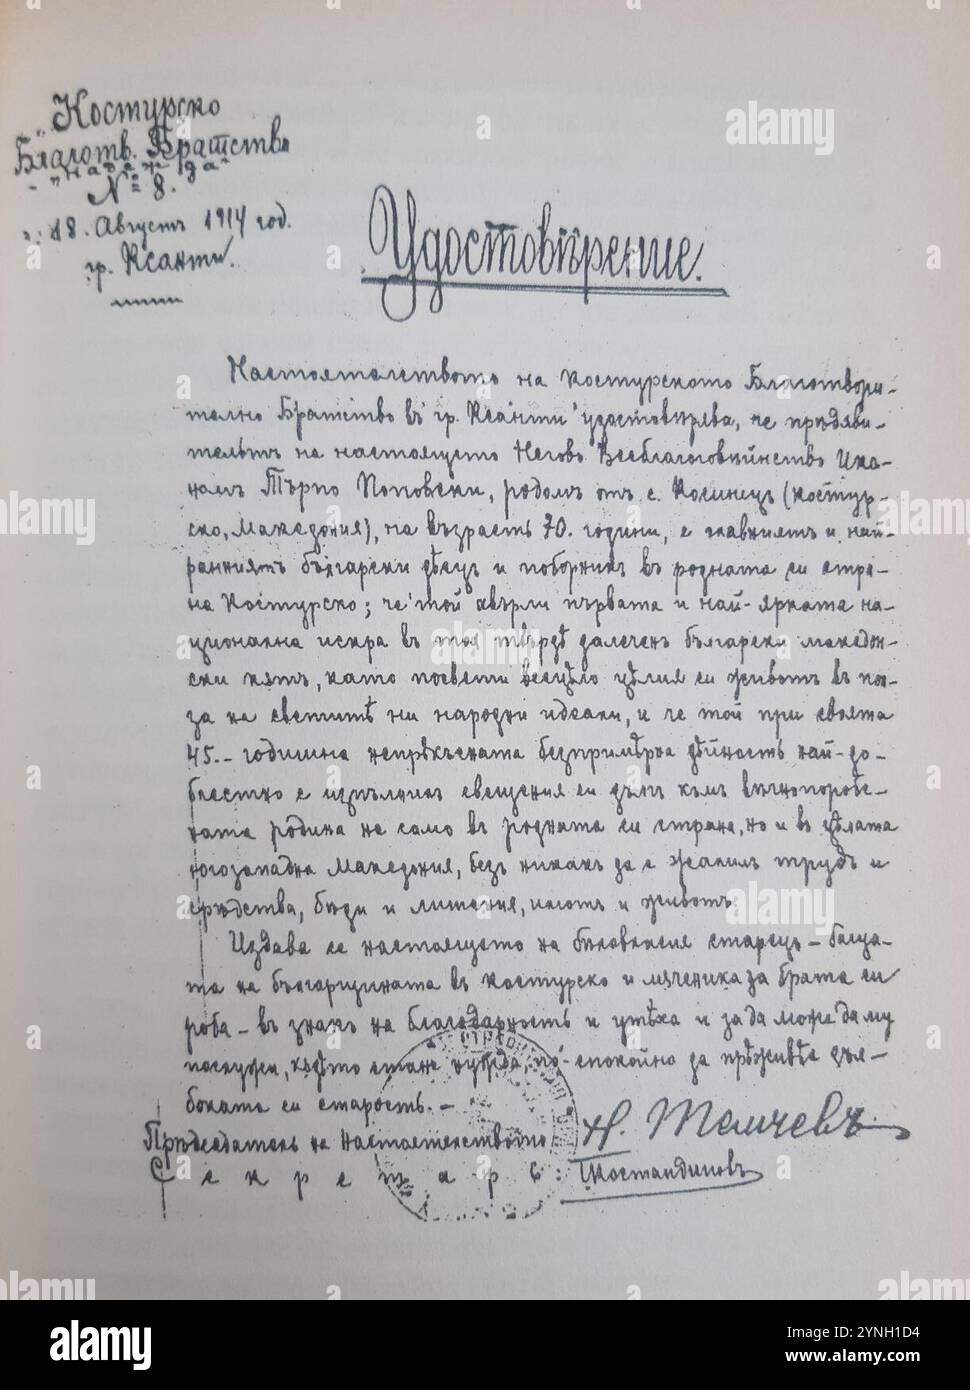 Костурско
Благотв. Братство
"Надежда"
№ 8.
18. Августъ 1914 год.
гр. Ксанти.
Удостовѣрение.
Настоятелството на Костурското Благотвори-
телно Братство въ гр. Ксанти удостовѣрява, че прѣдяви-
тельтъ на настоящето Негово Всеблагоговѣйнство Ико-
номъ Търпо Поповски, родомъ отъ с. Косинецъ (Костур-
ско, Македония), на възрасть 70. години, е главниятъ и най-
ранниятъ български дѣецъ и поборникъ въ родната си стра-
на Костурско; че той хвърли първата и най-ярката на-
ционална искра въ тоя твърдѣ далеченъ българско македон-
ски кѫтъ, като посвети всецѣло цѣлия си животъ въ пол-
за на светитѣ ни народни идеали, и че той при своята
45.-годишна непрѣкъсната безпримѣрна дѣйность най-до-
блестно е изпълнилъ свещения си дългъ къмъ вѣчнопоробе-
ната родина не само въ родната си страна, но и въ цѣлата
югозападна Македония, безъ никакъ да е жалилъ трудъ и
срѣдства, бѣди и лишения, имотъ и животъ.
Издава се настоящето на бѣловласия старецъ – баща-
та на българщината въ Костурско и мѫченика за брата си
роба – въ знакъ на благодарность и утѣха и за да може да му
послужи, кѫдѣто стане нужда, по-спокойно да прѣживѣе дъл-
боката си старость. –
Прѣдседатель на Настоятелството Н. Темчевъ
Секретарь: Костандиновъ
alamy
Image ID: 2YNH1D4
www.alamy.com